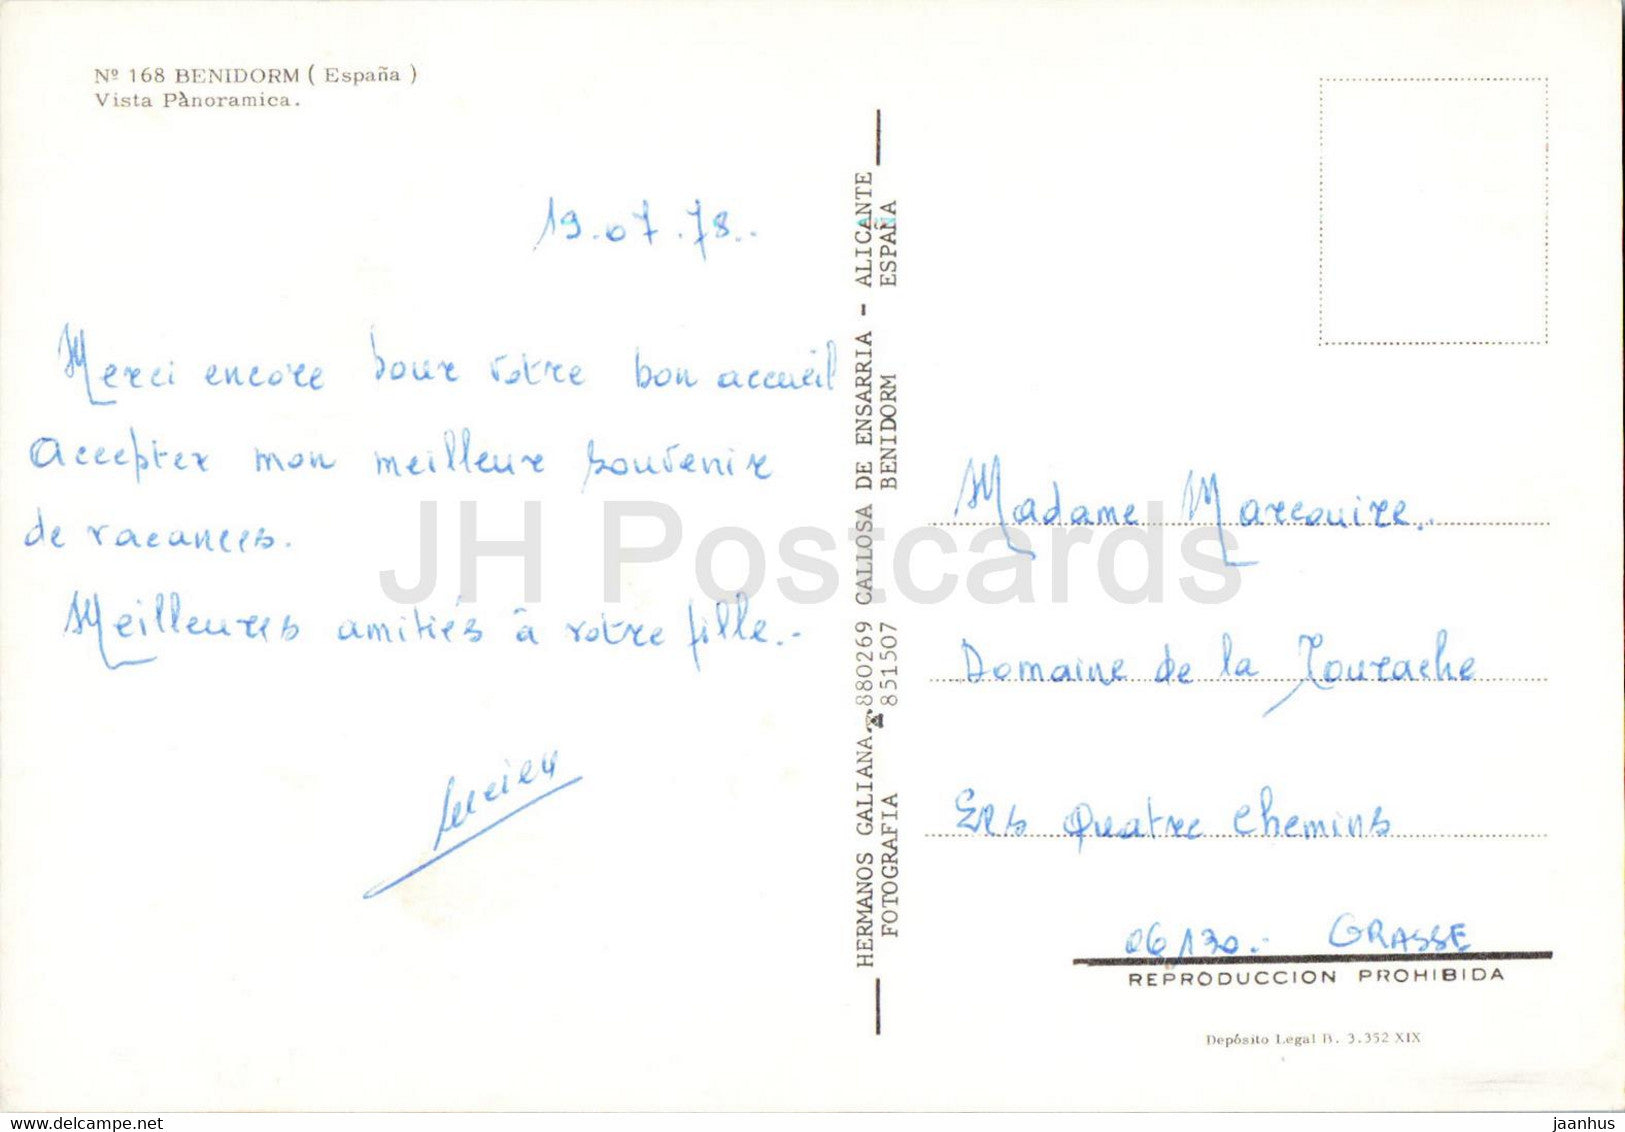 Nº 168 BENIDORM ( España )
Vista Pànoramica.
19.07.78..
Merci encore pour votre bon accueil
Accepter mon meilleur souvenir
de vacances.
Meilleures amitiés à votre fille.-
Lucien
HERMANOS GALIANA 880269 CALLOSA DE ENSARRIA - ALICANTE
FOTOGRAFIA 851507 BENIDORM ESPAÑA
Madame Marcouire..
Domaine de la Tourache
Les Quatre Chemins
06130.- GRASSE
REPRODUCCION PROHIBIDA
Depósito Legal B. 3.352 XIX
JH Postcards
jaanhus